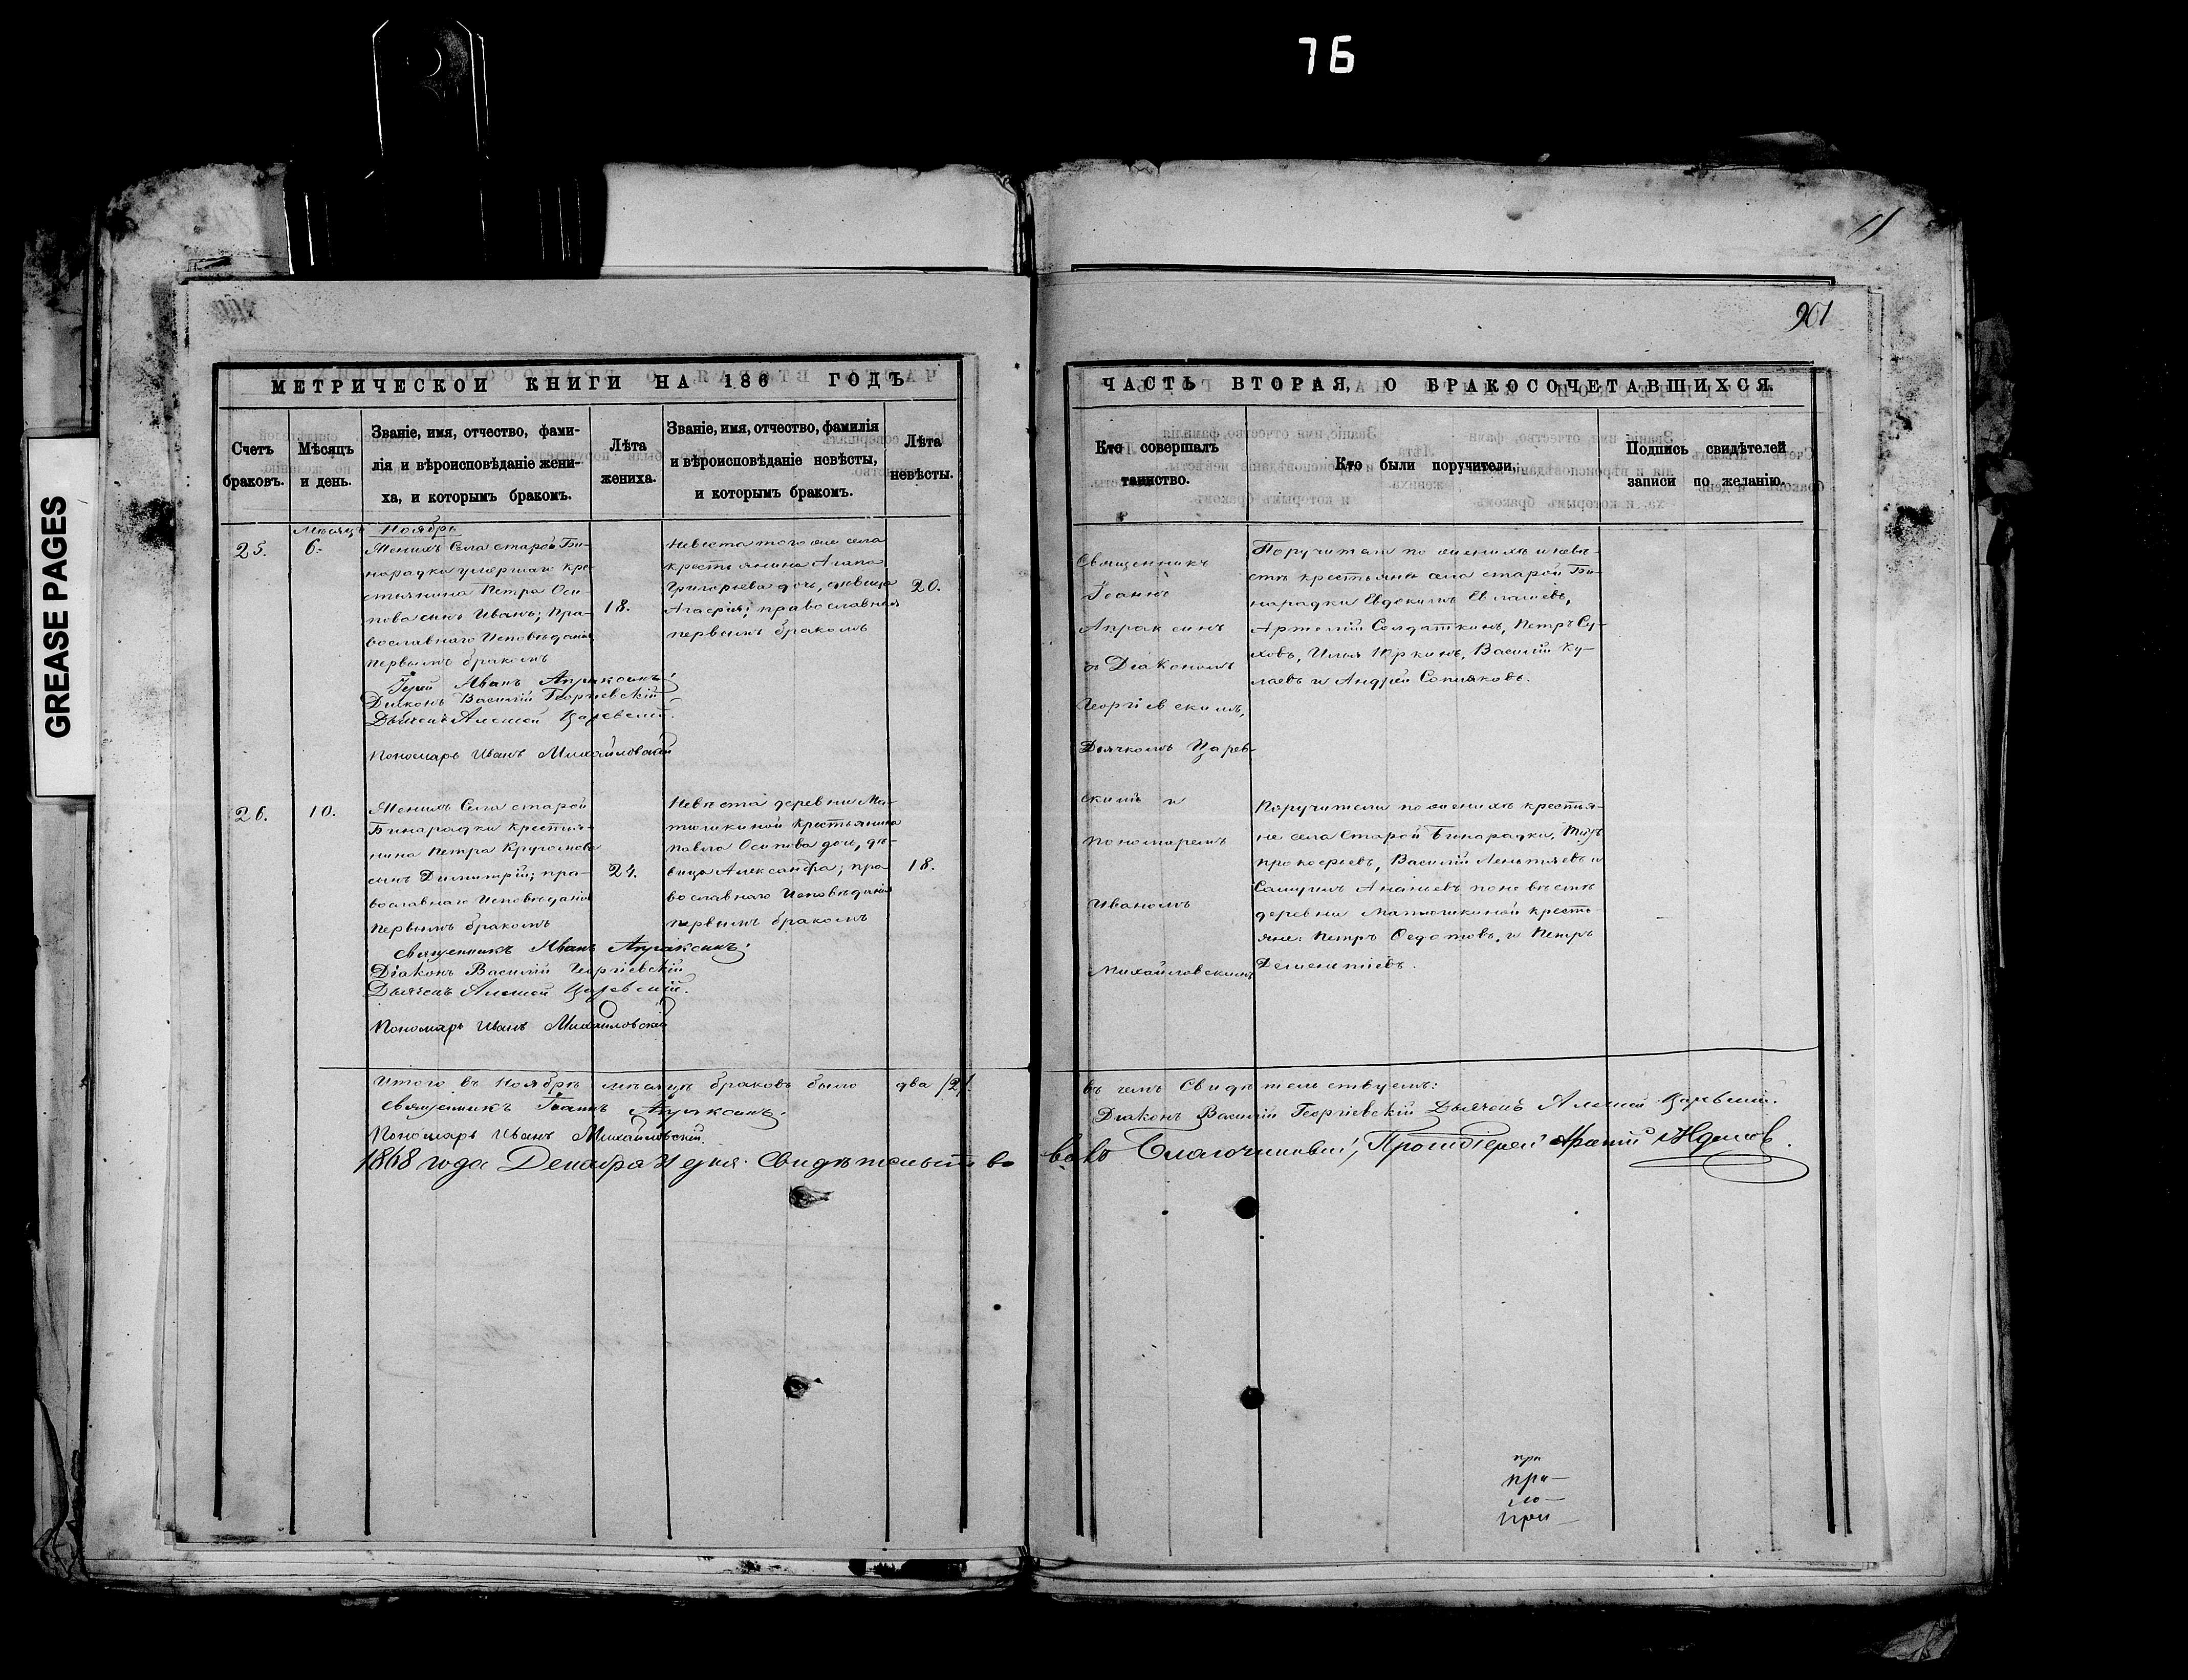 76
GREASE PAGES
11
901
МЕТРИЧЕСКОЙ КНИГИ НА 186 ГОДЪ
Счетъ браковъ.
Мѣсяцъ и день.
Званіе, имя, отчество, фами-
лія и вѣроисповѣданіе жени-
ха, и которымъ бракомъ.
Лѣта жениха.
Званіе, имя, отчество, фамилія
и вѣроисповѣданіе невѣсты,
и которымъ бракомъ.
Лѣта невѣсты.
Мѣсяцъ Ноябрь
25.
6.
Женихъ Села старой Би-
нарадки умершаго кре-
стьянина Петра Оси-
пова сынъ Иванъ; Пра-
вославнаго Исповѣданія
первымъ бракомъ
18.
Невѣста того же села
крестьянина
Григорьева дочь, дѣвица
православная
первымъ бракомъ
20.
Іерей Иванъ Апраксинъ;
Діаконъ Василій Георгіевскій
Дьячекъ Алексей Царевскій.
Пономарь Иванъ Михайловскій
26.
10.
Женихъ Села старой
Бинарадки крестья-
нина Петра
сынъ Димитрій; пра-
вославнаго Исповѣданія
первымъ бракомъ
24.
Невѣста деревни Ма-
тюшкиной Крестьянина
Павла Осипова дочь, дѣ-
вица Александра; пра-
вославнаго Исповѣданія
первымъ бракомъ
18.
священникъ Иванъ Апраксинъ;
Діаконъ Василій Георгіевскій
Дьячекъ Алексей Царевскій.
Пономарь Иванъ Михайловскій
Итого въ Ноябрѣ мѣсяцѣ браковъ было два /2/.
священникъ Іоаннъ Апраксинъ.
Пономарь Иванъ Михайловскій.
1868 года Декабря 31 дня. Свидѣтельство
ЧАСТЬ ВТОРАЯ, О БРАКОСОЧЕТАВШИХСЯ.
Кто совершалъ
таинство.
Кто были поручители.
Подпись свидѣтелей
записи по желанію.
Священникъ
Іоаннъ
Апраксинъ
съ Діакономъ
Георгіевскимъ,
Дьячкомъ Царев-
скимъ и
Пономаремъ
Иваномъ
Михайловскимъ
Поручители по женихѣ и невѣ-
стѣ крестьяне села старой Би-
нарадки Евдокимъ
Солдаткинъ, Петръ Су-
ховъ, Илья Юркинъ, Василій Ку-
лаевъ и Андрей
Поручители по женихѣ крестья-
не села Старой Бинарадки,
Прокофьевъ, Василій и
Ананьевъ по невѣстѣ
деревни Матюшкиной кресть-
яне: Петръ Федотовъ, и Петръ
въ чемъ Свидѣтельствуемъ:
Діаконъ Василій Георгіевскій Дьячекъ Алексей Царевскій.
валъ Благочинный, Протоіерей
при
при—
при—